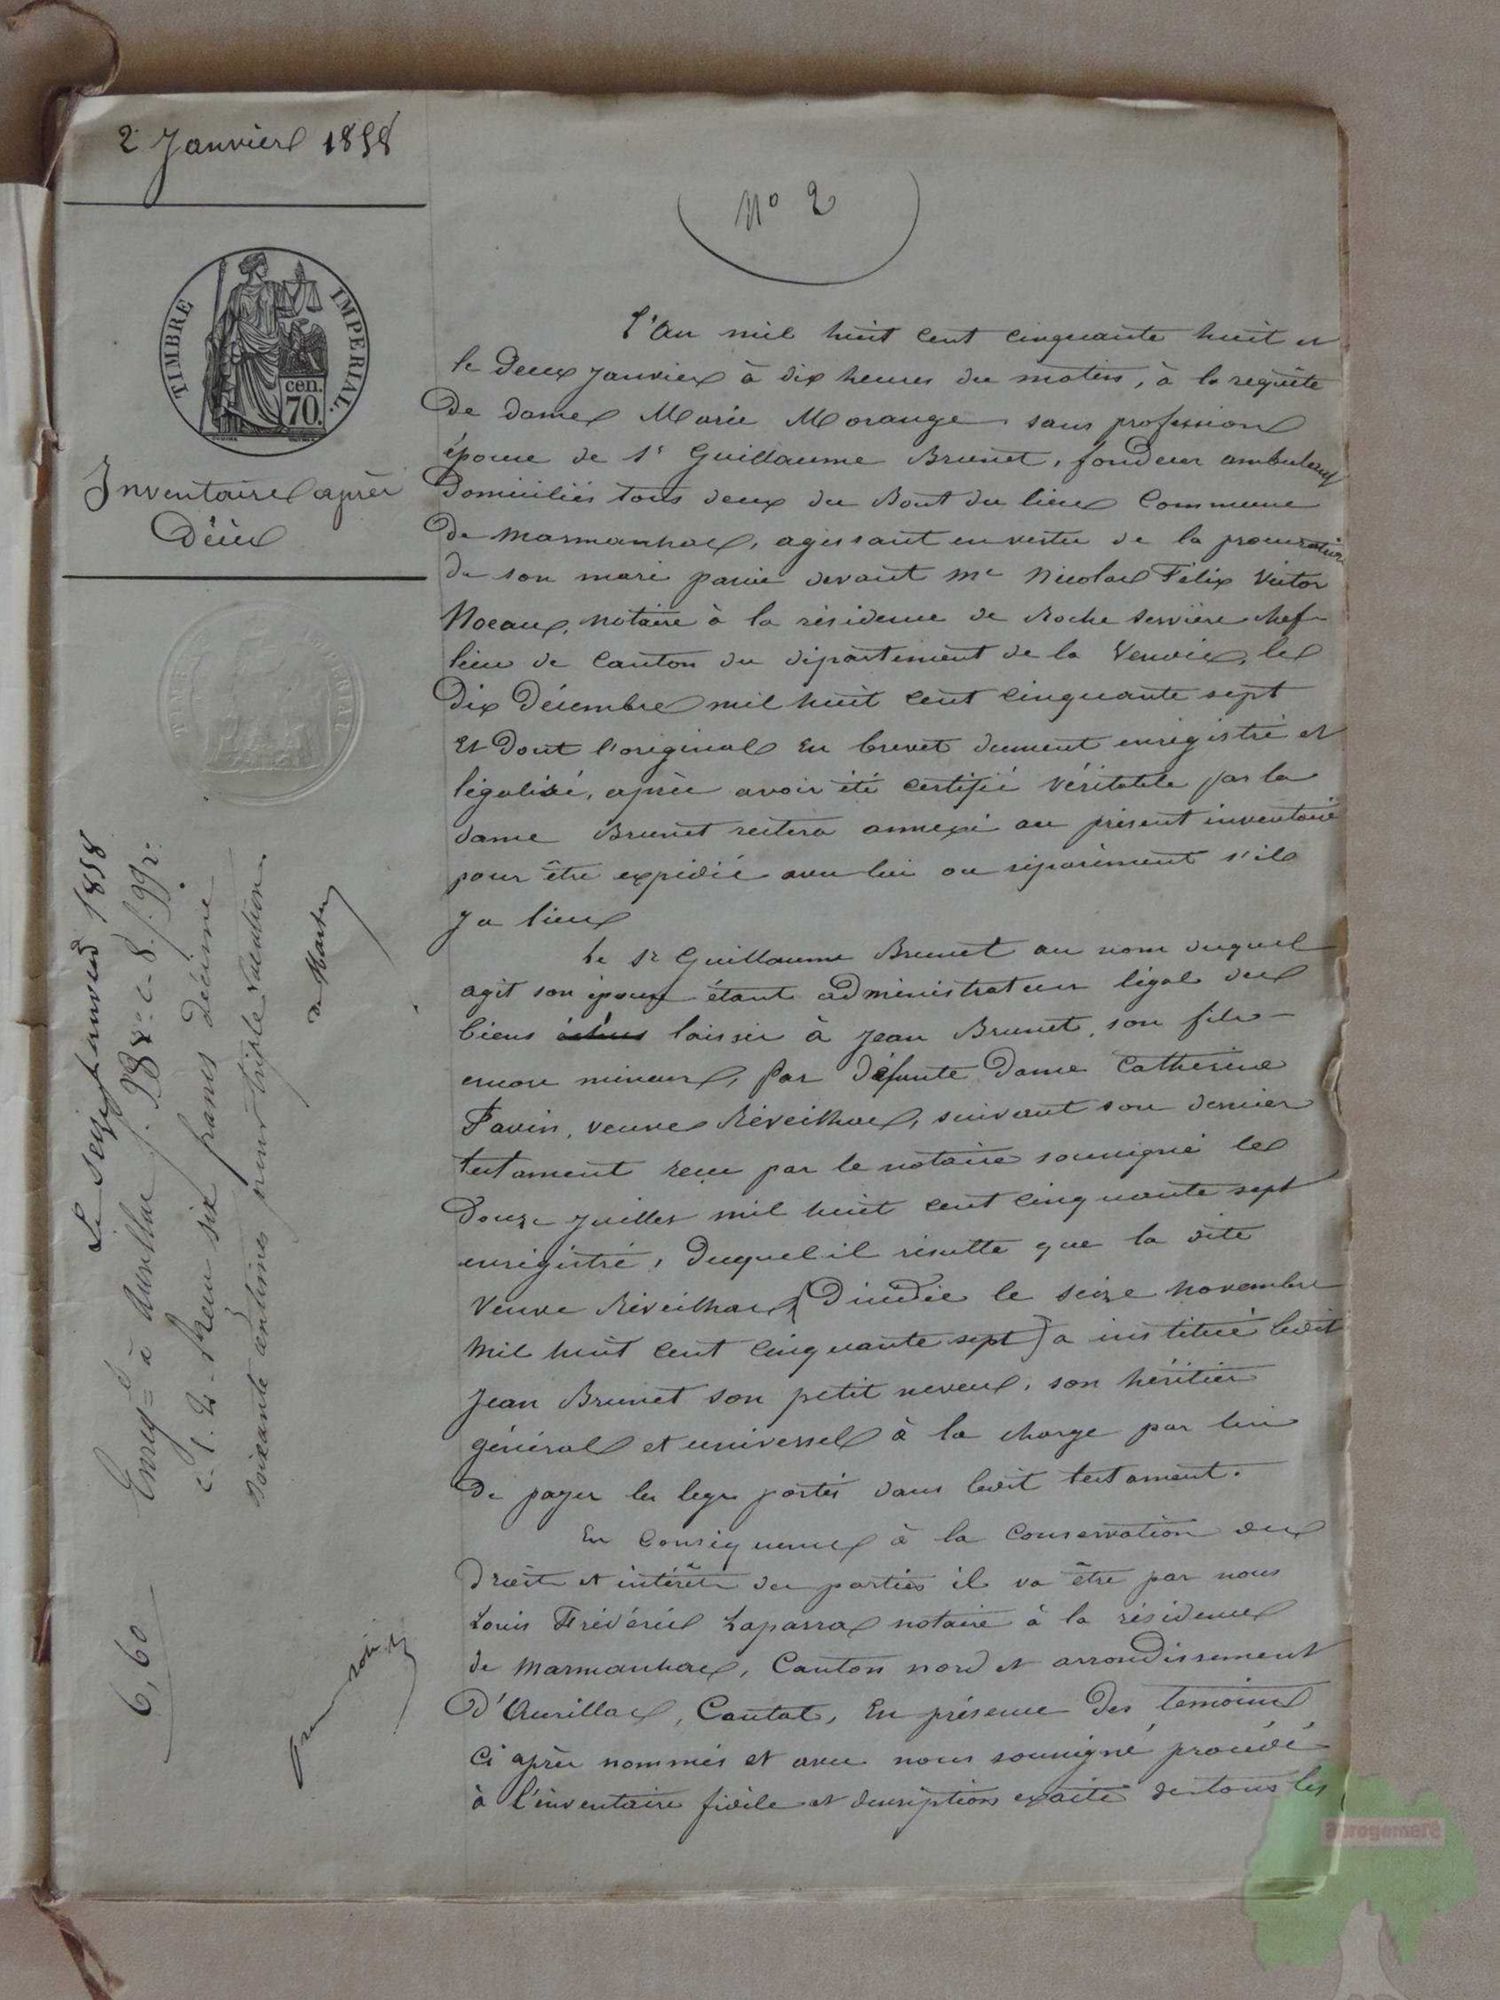 2 Janvier 1858
N° 2
TIMBRE IMPERIAL.
cen.
70.
Inventaire après
Décès
L'An mil huit cent cinquante huit et
le deux janvier à dix heures du matin, à la requête
De dame Marie Morange sans profession
épouse de Sr Guillaume Brunet, fondeur ambulant
Domiciliés tous deux du Bout du lieu Commune
De Marmanhac, agissant en vertu de la procuration
de son mari passée devant Me Nicolas Félix Victor
notaire à la résidence de Roche servière chef
lieu de Canton du département de la Vendée, le
Dix Décembre mil huit cent cinquante sept
Et Dont l'original en brevet dument enregistré et
légalisé, après avoir été certifié véritable par la
dame Brunet restera annexé au présent inventaire
pour être expédié avec lui ou séparément s'il
y a lieu
Le Sr Guillaume Brunet au nom duquel
agit son épouse étant administrateur légal des
biens échus laissés à Jean Brunet, son fils
encore mineur, par défunte Dame Catherine
Favin, veuve Réveilhac, suivant son dernier
testament reçu par le notaire soussigné le
Douze juillet mil huit cent cinquante sept
enregistré, Duquel il résulte que la dite
Veuve Réveilhac (Décédée le seize novembre
mil huit cent cinquante sept) a institué ledit
Jean Brunet son petit neveu, son héritier
général et universel à la charge par lui
De payer les legs portés dans ledit testament.
En Conséquence à la Conservation des
Droits et intérêts des parties il va être par nous
Louis Frédéric Laparra notaire à la résidence
de Marmanhac, Canton nord et arrondissement
D'Aurillac, Cantal, En présence Des temoins
Ci après nommés et avec nous soussigné procédé
à l'inventaire fidèle et description exacte de tous les
Enregé à Aurillac Le seize janvier 1858
f. 98 vo c. 8. f. 99 r.
c. 1. 2. Reçu six francs Décime
soixante centimes pour triple vacation.
6,60